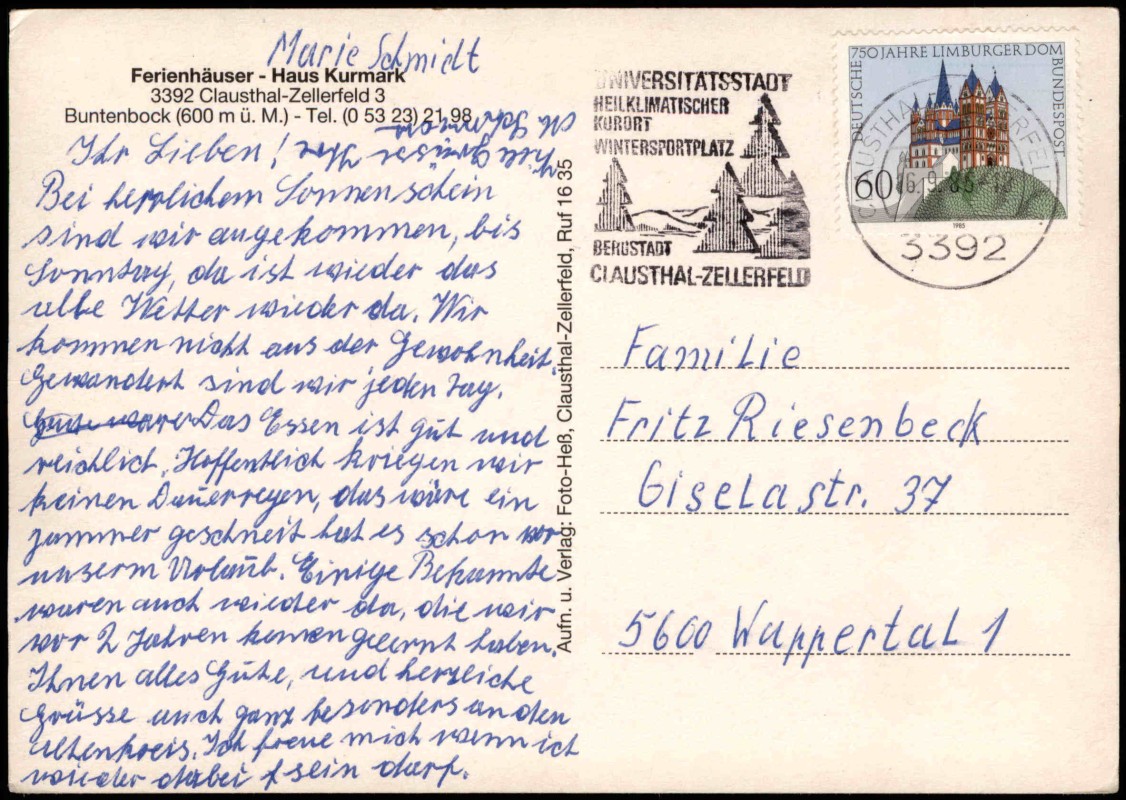 Marie Schmidt
Ferienhäuser - Haus Kurmark
3392 Clausthal-Zellerfeld 3
Buntenbock (600 m ü. M.) - Tel. (0 53 23) 21 98
Ihr Lieben!
Bei herrlichem Sonnenschein
sind wir angekommen, bis
Sonntag, da ist wieder das
alte Wetter wieder da. Wir
kommen nicht aus der Gewohnheit.
Gewandert sind wir jeden Tag.
Das Essen ist gut und
reichlich. Hoffentlich kriegen wir
keinen Dauerregen, das wäre ein
jammer geschneit hat es schon vor
unserm Urlaub. Einige Bekannte
waren auch wieder da, die wir
vor 2 Jahren kennengelernt haben.
Ihnen alles Gute, und herzliche
Grüsse auch ganz besonders an den
altenkreis. Ich freue mich wenn ich
wieder dabei sein darf.
Aufn. u. Verlag: Foto-Heß, Clausthal-Zellerfeld, Ruf 16 35
UNIVERSITÄTSSTADT
HEILKLIMATISCHER
KURORT
WINTERSPORTPLATZ
BERGSTADT
CLAUSTHAL-ZELLERFELD
750 JAHRE LIMBURGER DOM
DEUTSCHE BUNDESPOST
60
1985
3392
Familie
Fritz Riesenbeck
Giselastr. 37
5600 Wuppertal 1